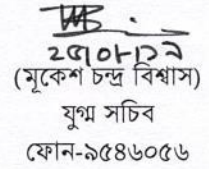 (মূকেশ চন্দ্র বিশ্বাস)
যুগ্ম সচিব
ফোন-৯৫৪৬০৫৬